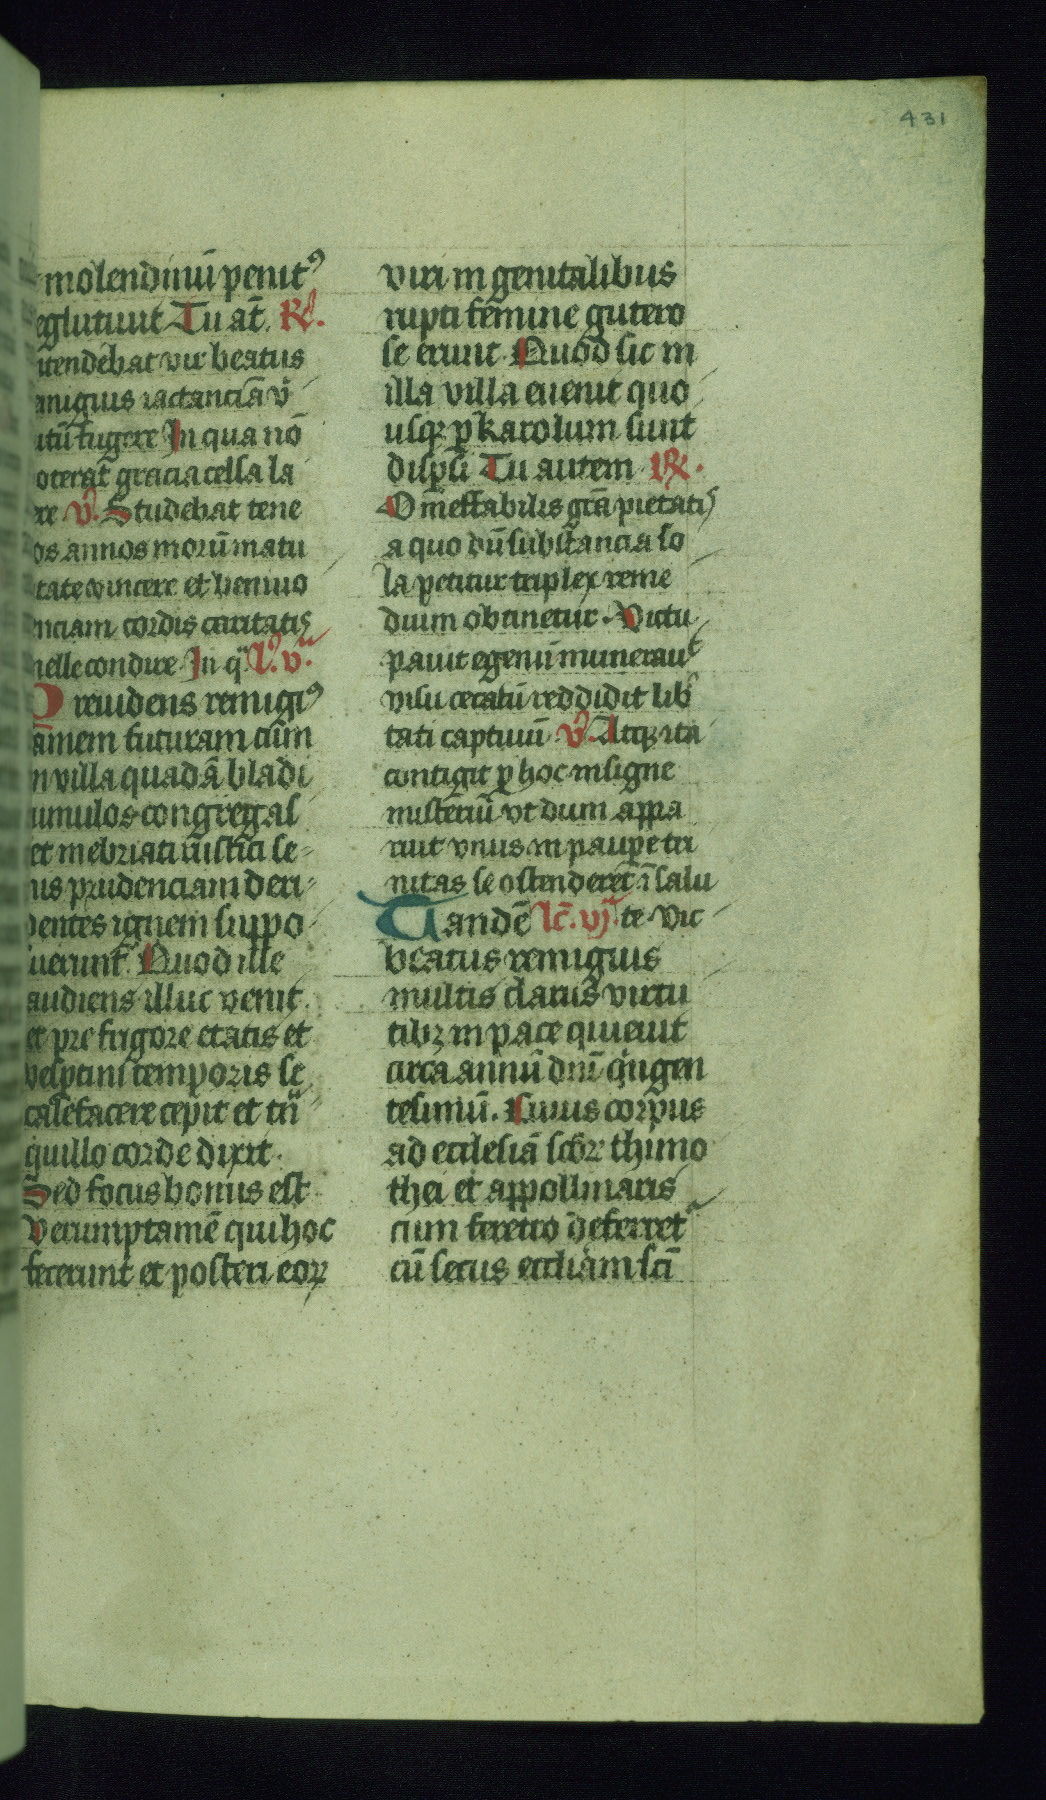 431
molendinū penit⁹
eglutiuit Tu at̄. R/.
itendebat vir beatus
migius iactanciā v̓
itū fugere In qua nō
oterat gracia cella la
re v̓. Studebat tene
os annos morū matu
tate vincere et benino
nciam cordis caritatis
melle condire In q̈ L̓. v̓.
Preuidens remigi⁹
amem futuram cum
in villa quadā bladi
umulos congregas
et inebriati rustici se
ius prudenciam deri
dentes ignem suppo
suerunt. Quod ille
audiens illuc venit
et pre frigore etatis et
vesptini temporis se
calefacere cepit et tn̄
quillo corde dixit.
Sed focus bonus est
Verumptamē qui hoc
fecerunt et posteri eoꝝ
viri in genitalibus
rupti femine gutero
se erunt. Quod sic in
illa villa euenit quo
usqꝫ p̱ karolum sunt
disp̱si Tu autem R/.
O ineffabilis gr̄a pietatis
a quo dū substancia so
la petitur triplex reme
dium obtinetur. Victu
pauit egenū munerauit
visu cecatū reddidit lib̓
tati captiuū v̓. Atqꝫ ita
contigit p̱ hoc insigne
misteriū vt dum appa
ruit vnus in paupe tri
nitas se ostenderet ī salu
Tandē Lc̄. vj. te. Vir
beatus remigius
multis clarus virtu
tibꝫ in pace quieuit
circa annū dn̄i qͥngen
tesimū. Huius corpus
ad ecclesiā sc̄orꝝ thimo
thei et appollinaris
cum feretro deferret
cū secus eccliam sc̄i